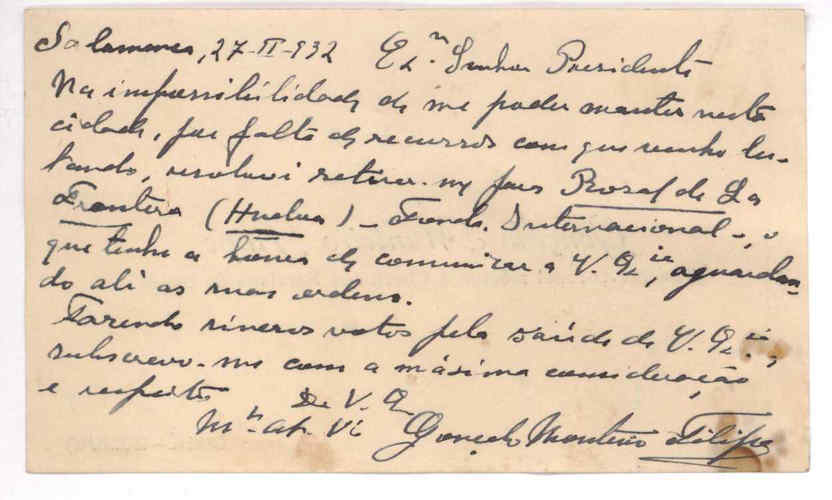 Salamanca, 27-II-932 Ex.ᵐ Senhor Presidente
Na impossibilidade de me poder manter nesta
cidade, por falta de recursos com que venho lu-
tando, resolvi retirar-me para Rosal de La
Frontera (Huelva) - Fonda Internacional -, o
que tenho a honra de comunicar a V. Ex.ⁱᵃ, aguardan-
do ali as suas ordens.
Fazendo sinceros votos pela saúde de V. Ex.ⁱᵃ,
subscrevo-me com a máxima consideração
e respeito
De V. Ex
Mᵗ At. Vᵒ Gonçalo Monteiro Filipe